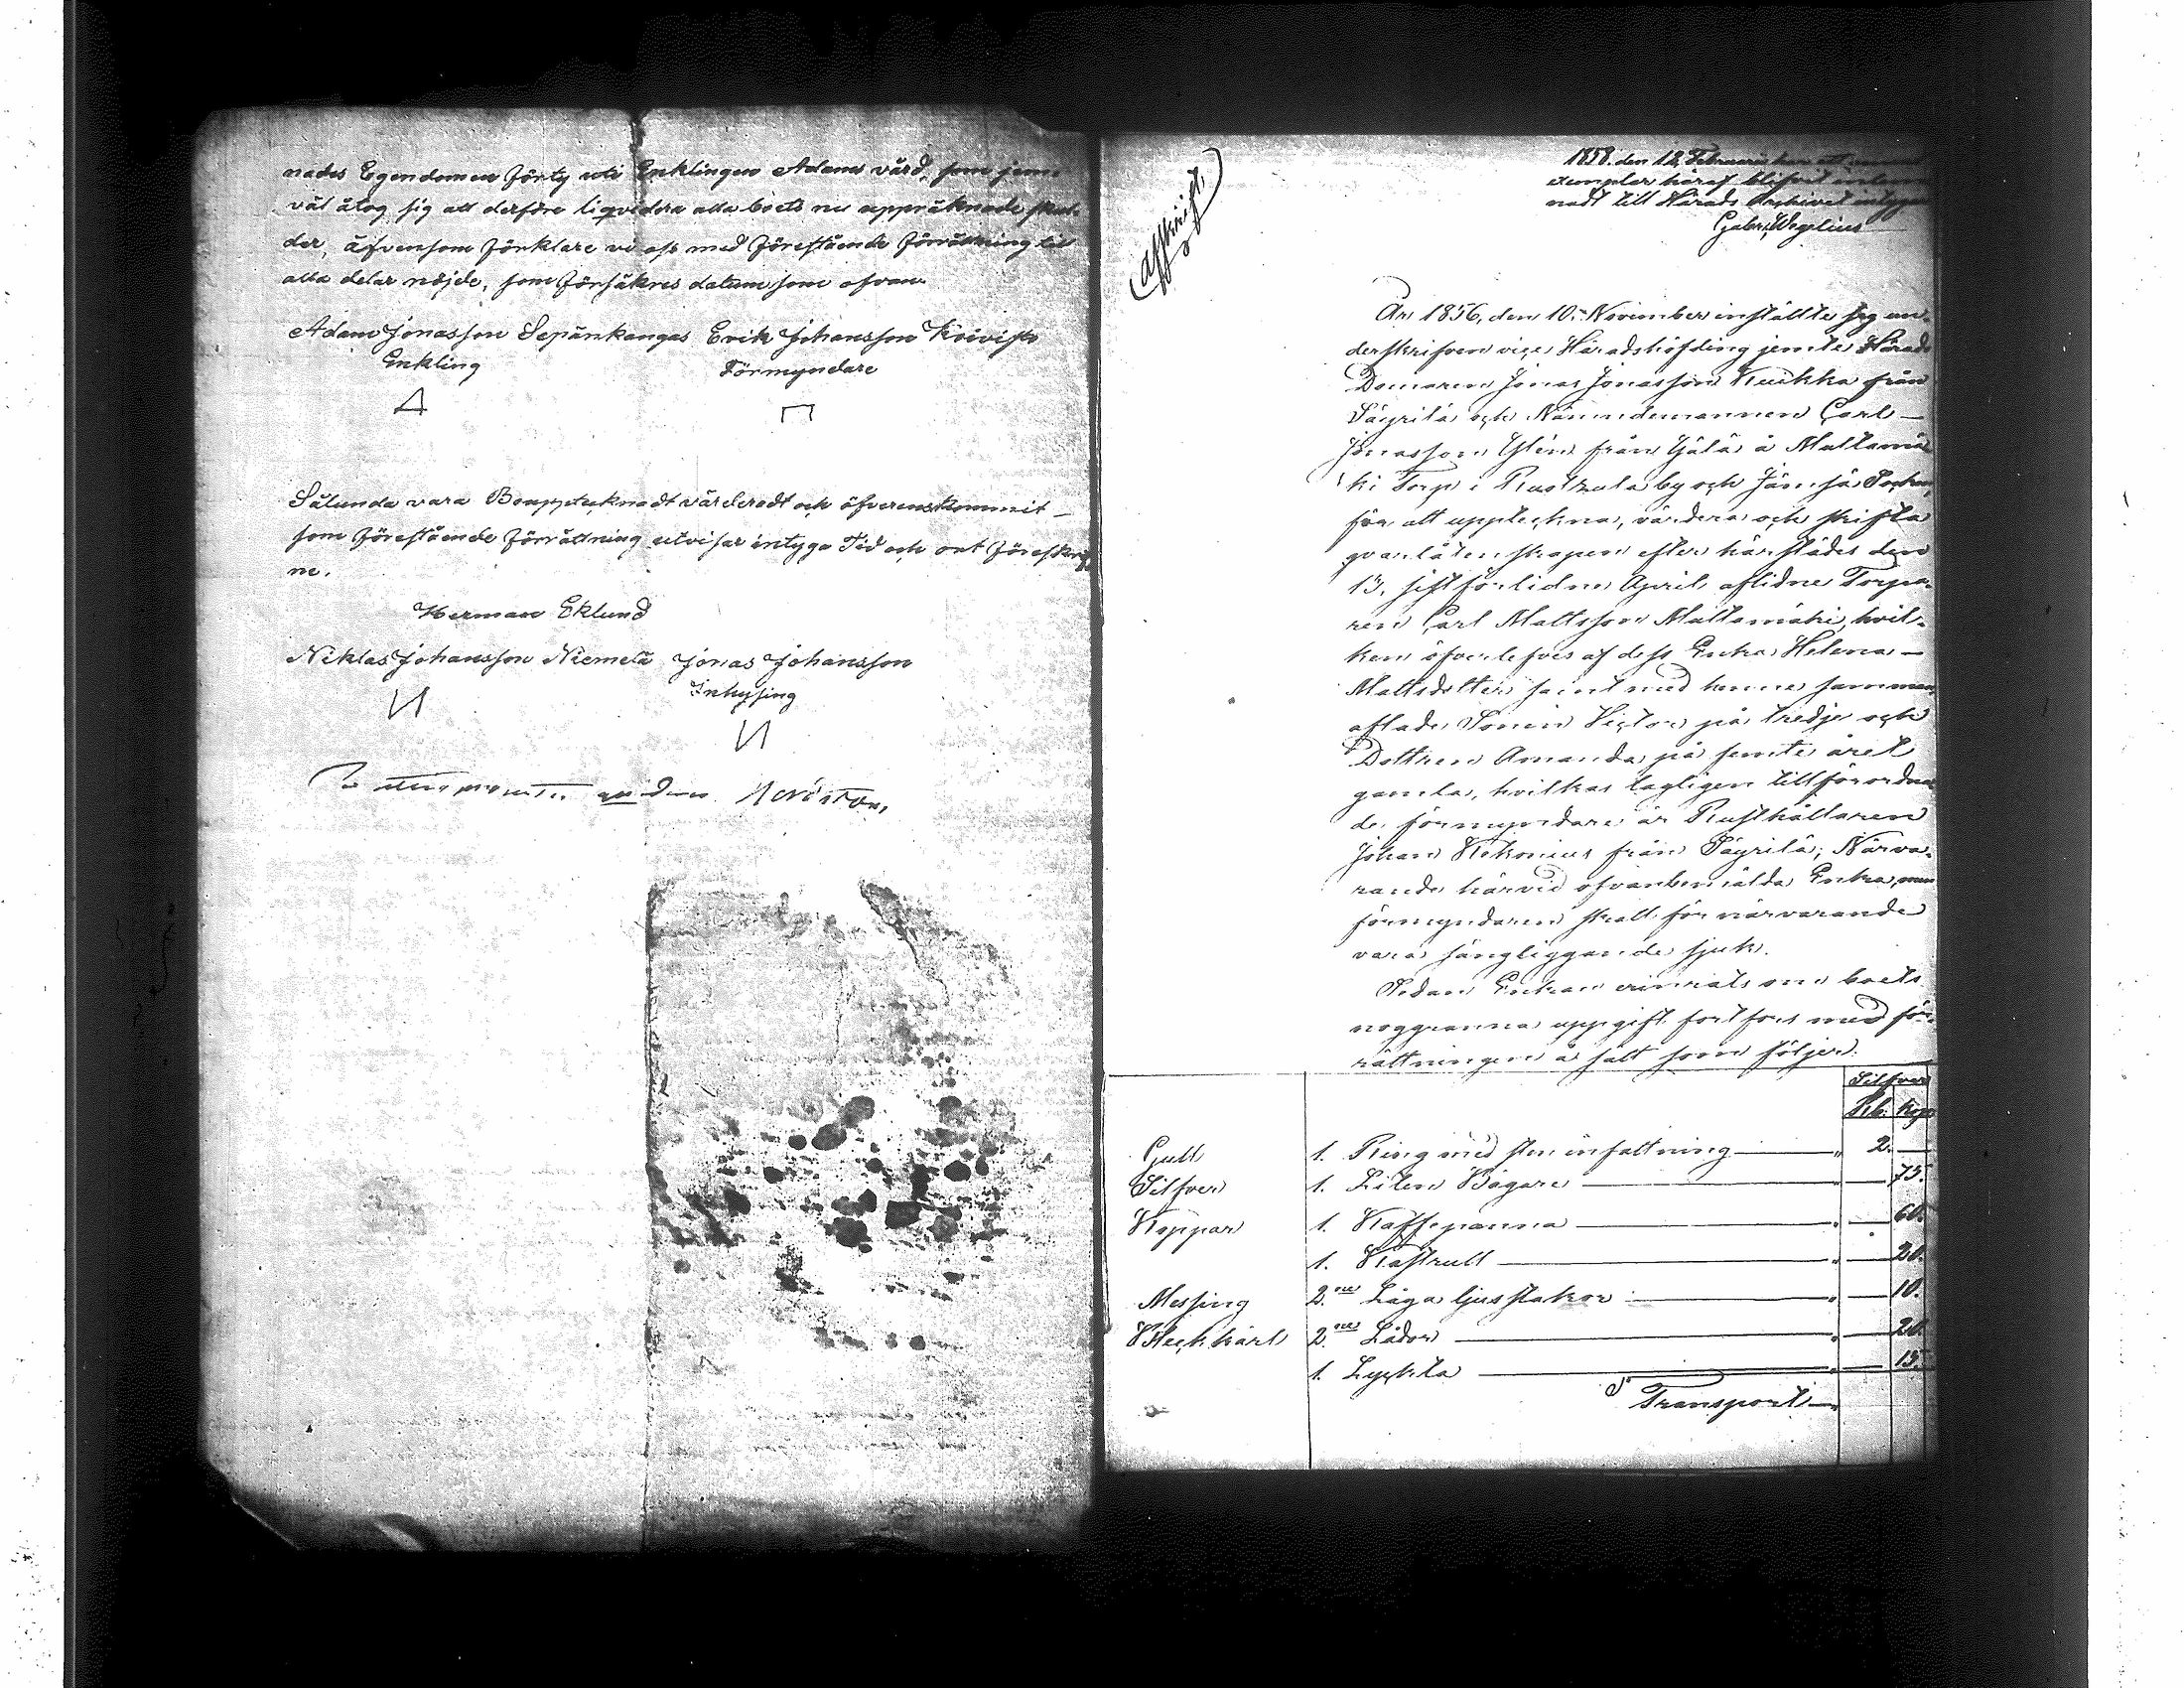 nades Egendomen förty uti Enklingen Adams vård, som jem-
väl åtog sig att derföre liqvidera alla boets nu uppräknade skul-
der, äfvensom förklare vi oss med förestående förrättning till
alla delar nöjde, som försäkres datum som ofvan
Adam Jonasson Sepänkangas Erik Johansson Koivisto
Enkling Förmyndare
Sålunda vara Bouppteknadt värderadt och öfverenskommit
som förestående förrättning utvisar intyga Tid och ort föreskrif-
ne.
Herman Eklund
Niklas Johansson Niemelä Jonas Johansson
Inhysing
(Afskrift)
1858. den 12 Februarii har ett
exemplar häraf blifvit inlem-
nadt till Härads Archivet intygar
Gabr. Wegelius
År 1856, den 10 November inställte sig un-
derskrifven vice Häradshöfding jemte Härads
Domaren Jonas Jonasson Kuikka från
Säyrilä och Nämndemannen Carl
Jonasson Ylén från Yjälä å Mattamä-
ki Torp i Rustzala by och Jämsä Socken,
för att uppteckna, värdera och skifta
qvarlåtenskapen efter härstädes den
13, sistförlidne April aflidne Torpa-
ren Carl Mattsson Mattamäki, hvil-
ken öfverlefves af dess Enka Helena
Mattsdotter samt med henne samman
aflade Sonen Victor på tredje och
Dottren Amanda på femte året
gamla, hvilkas lagligen tillförordna-
de förmyndare är Rusthållaren
Johan Kekonius från Säyrilä; Närva-
rande härvid ofvanbemälda Enka, men
förmyndaren skall för närvarande
vara sängliggande sjuk.
Sedan Enkan erinrats om boets
noggranna uppgift fortfors med för-
rättningen å sätt som följer:
Silfver
Rub. Kop.
Guld 1. Ring med sten infattning 2. —
Silfver 1. Liten Bägare — 75.
Koppar 1. Kaffepanna — 60.
1. Kastrull — 20.
Messing 2.ne Låga ljusstakar — 10.
Bleckkärl 2.ne Lådor — 20.
1. Lyckta — 15.
Transport